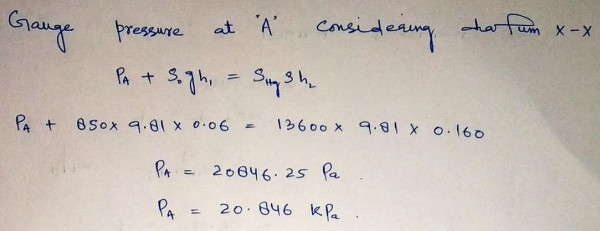 Gauge pressure at 'A' considering datum x-x
P_A + S_o g h_1 = S_Hg g h_2
P_A + 850 x 9.81 x 0.06 = 13600 x 9.81 x 0.160
P_A = 20846.25 Pa.
P_A = 20.846 kPa.